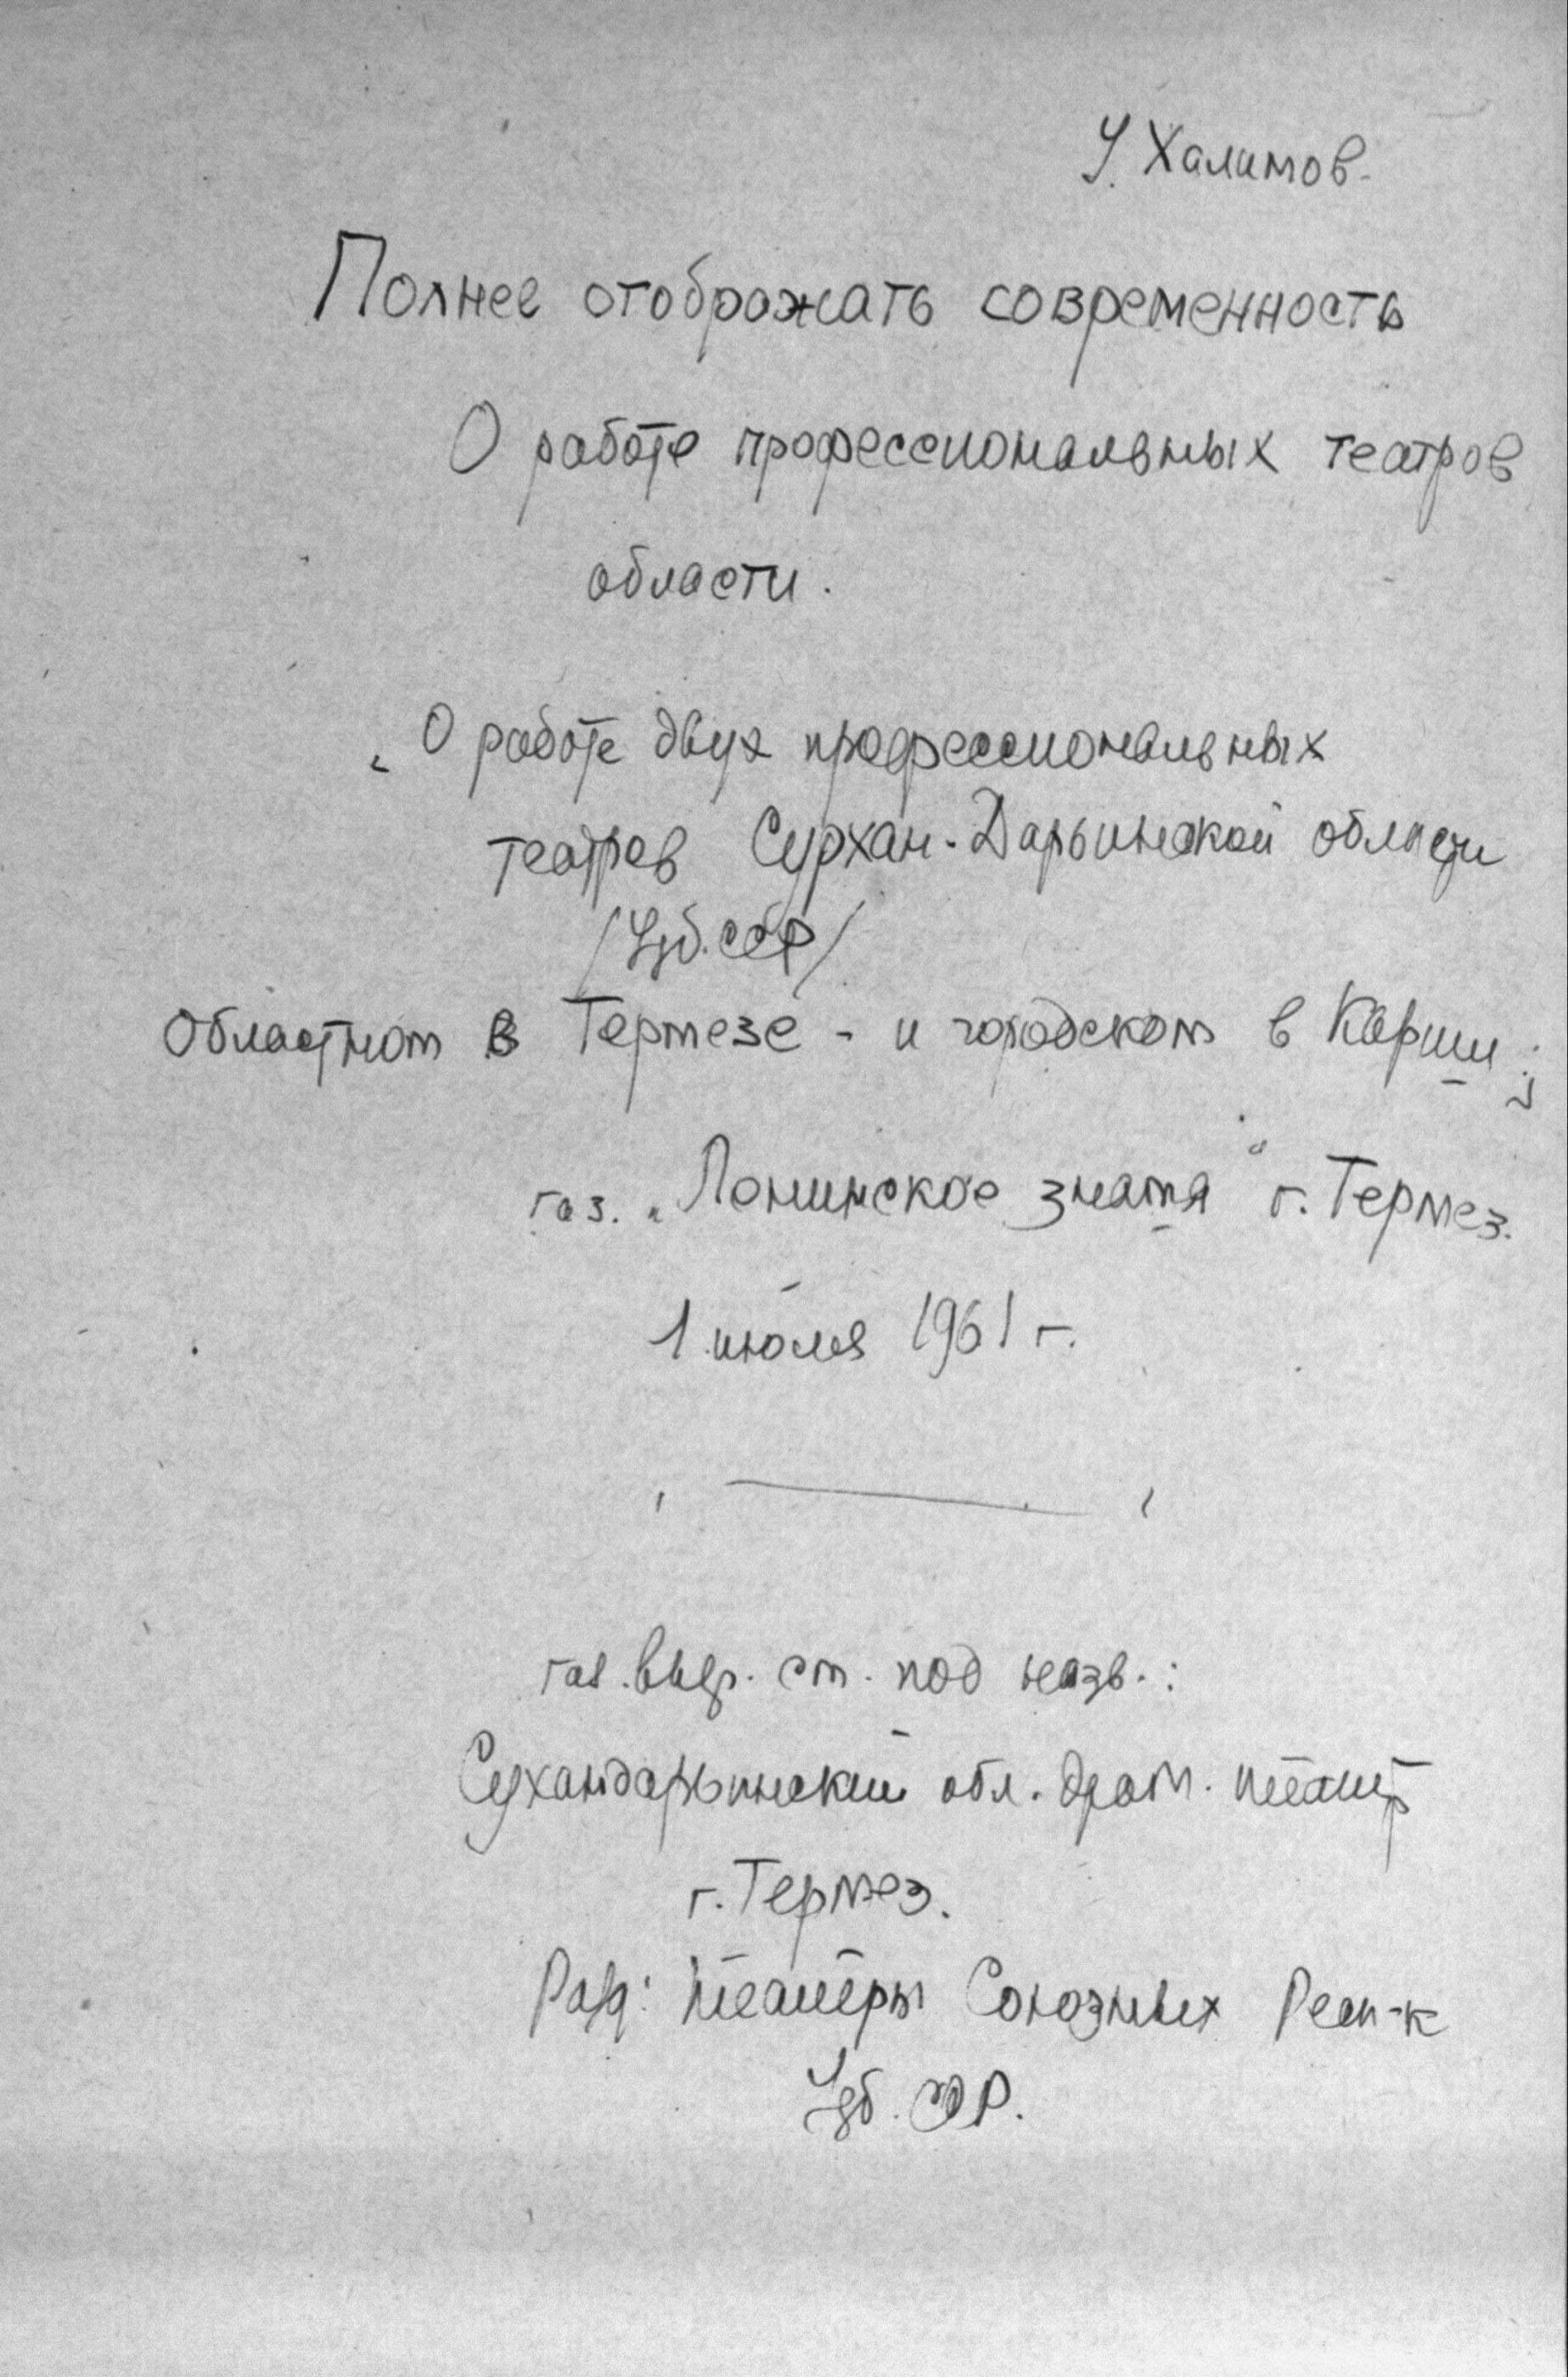 У. Халимов.
Полнее отображать современность
О работе профессиональных театров
области.
О работе двух профессиональных
театров Сурхан-Дарьинской области
/Узб.ССР/
Областном в Термезе - и городском в Карши;
газ. „Ленинское знамя" г. Термез.
1 июля 1961 г.
газ. выр. ст. под назв.:
Сухандарьинский обл. драм. театр
г. Термез.
Разд: Театры Союзных Респ-к
Узб. ССР.